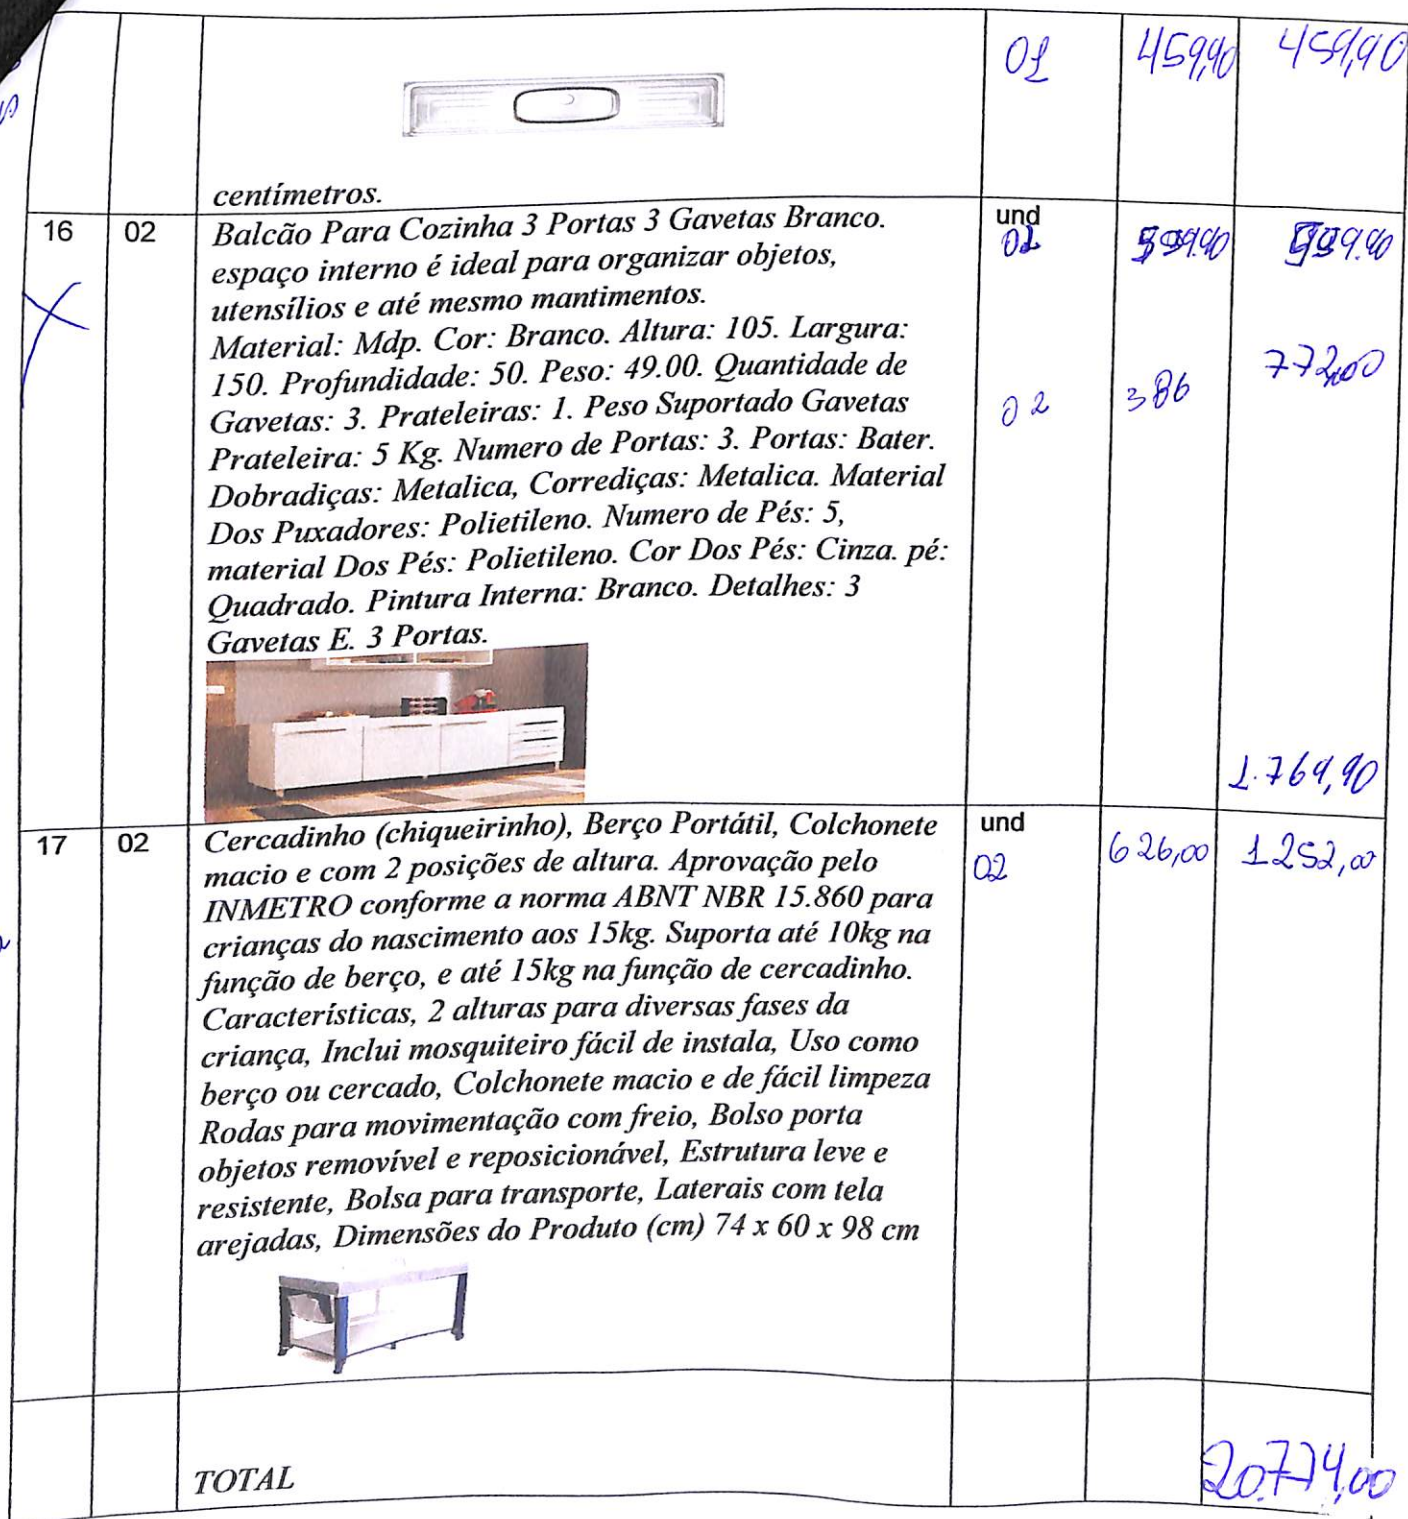 01 459,90 459,90
centímetros.
16 02 Balcão Para Cozinha 3 Portas 3 Gavetas Branco. und
espaço interno é ideal para organizar objetos,
utensílios e até mesmo mantimentos.
Material: Mdp. Cor: Branco. Altura: 105. Largura:
150. Profundidade: 50. Peso: 49.00. Quantidade de
Gavetas: 3. Prateleiras: 1. Peso Suportado Gavetas 02 386 772,00
Prateleira: 5 Kg. Numero de Portas: 3. Portas: Bater.
Dobradiças: Metalica, Corrediças: Metalica. Material
Dos Puxadores: Polietileno. Numero de Pés: 5,
material Dos Pés: Polietileno. Cor Dos Pés: Cinza. pé:
Quadrado. Pintura Interna: Branco. Detalhes: 3
Gavetas E. 3 Portas.
1.769,90
17 02 Cercadinho (chiqueirinho), Berço Portátil, Colchonete und
macio e com 2 posições de altura. Aprovação pelo 02 626,00 1252,00
INMETRO conforme a norma ABNT NBR 15.860 para
crianças do nascimento aos 15kg. Suporta até 10kg na
função de berço, e até 15kg na função de cercadinho.
Características, 2 alturas para diversas fases da
criança, Inclui mosquiteiro fácil de instala, Uso como
berço ou cercado, Colchonete macio e de fácil limpeza
Rodas para movimentação com freio, Bolso porta
objetos removível e reposicionável, Estrutura leve e
resistente, Bolsa para transporte, Laterais com tela
arejadas, Dimensões do Produto (cm) 74 x 60 x 98 cm
TOTAL 20.774,00